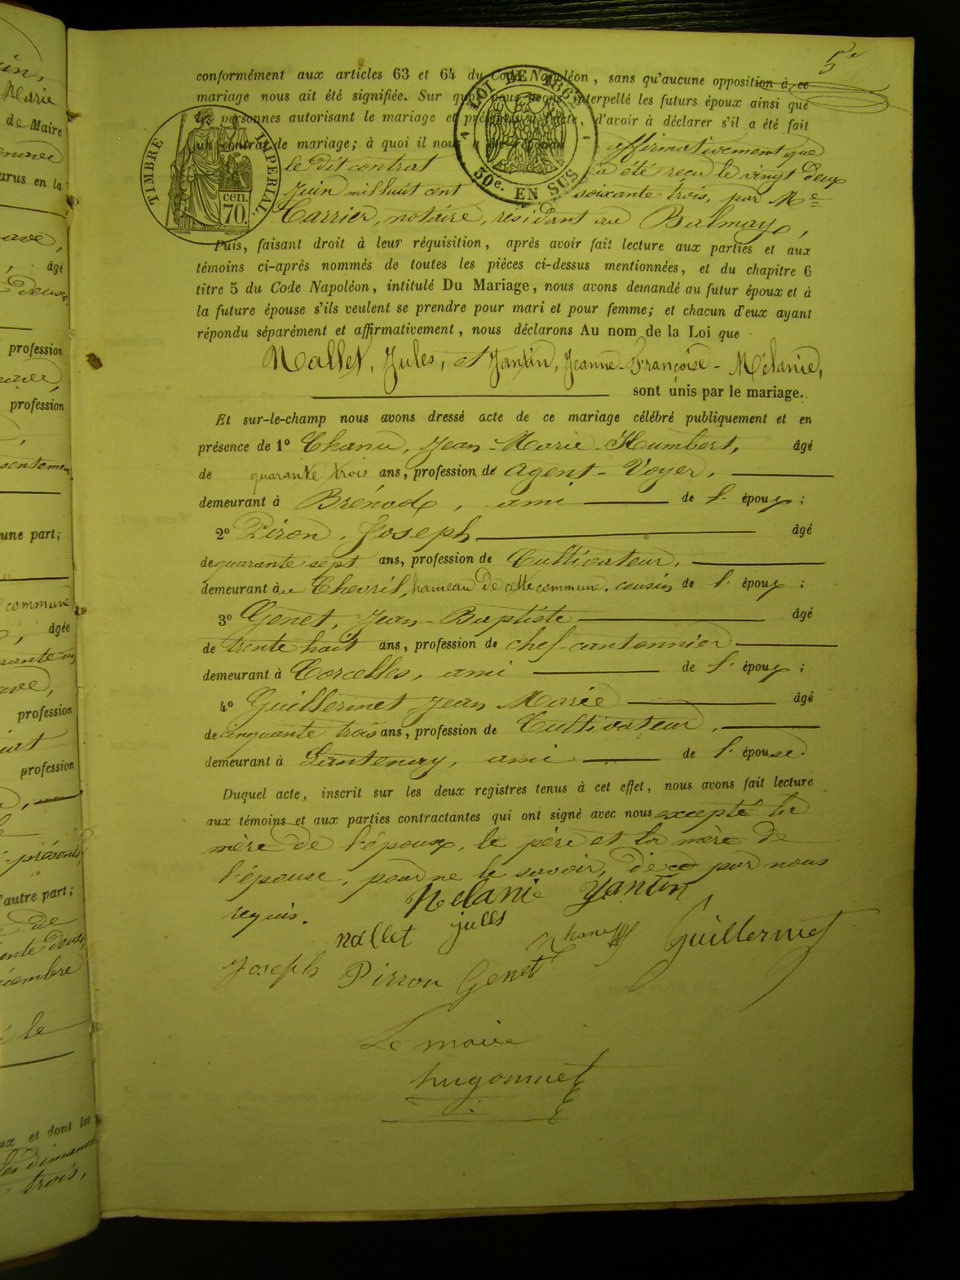 5e
conformément aux articles 63 et 64 du Code Napoléon, sans qu'aucune opposition à ce
mariage nous ait été signifiée. Sur quoi nous avons interpellé les futurs époux ainsi que
les personnes autorisant le mariage et présentes à l'acte, d'avoir à déclarer s'il a été fait
un contrat de mariage; à quoi il nous a été répondu affirmativement que
le dit contrat a été reçu le vingt deux
Juin mil huit cent soixante trois, par Me
Carrier, notaire, résidant au Balmay,
TIMBRE IMPERIAL
70 cen.
LOI DE 1863
50c. EN SUS
Puis, faisant droit à leur réquisition, après avoir fait lecture aux parties et aux
témoins ci-après nommés de toutes les pièces ci-dessus mentionnées, et du chapitre 6
titre 5 du Code Napoléon, intitulé Du Mariage, nous avons demandé au futur époux et à
la future épouse s'ils veulent se prendre pour mari et pour femme; et chacun d'eux ayant
répondu séparément et affirmativement, nous déclarons Au nom de la Loi que
Nallet, Jules, et Jantin, Jeanne-Françoise-Mélanie,
sont unis par le mariage.
Et sur-le-champ nous avons dressé acte de ce mariage célébré publiquement et en
présence de 1o Chanu, Jean-Marie-Humbert, âgé
de quarante trois ans, profession de agent-Voyer,
demeurant à Brénod, ami de l' époux;
2o Piron, Joseph âgé
de quarante sept ans, profession de Cultivateur,
demeurant au Chevril, hameau de cette commune, cousin de l' époux;
3o Genet, Jean-Baptiste âgé
de trente huit ans, profession de chef-cantonnier
demeurant à Corcelles, ami de l' époux;
4o Guillermet Jean Marie âgé
de cinquante trois ans, profession de Cultivateur,
demeurant à Lantenay, ami de l' épouse.
Duquel acte, inscrit sur les deux registres tenus à cet effet, nous avons fait lecture
aux témoins et aux parties contractantes qui ont signé avec nous excepté la
mère de l'époux, le père et la mère de
l'épouse, pour ne le savoir, de ce par nous
requis.
Melanie Yantin
nallet jules Chanu Guillermet
Joseph Pirron Genet
Le maire
hugonnet